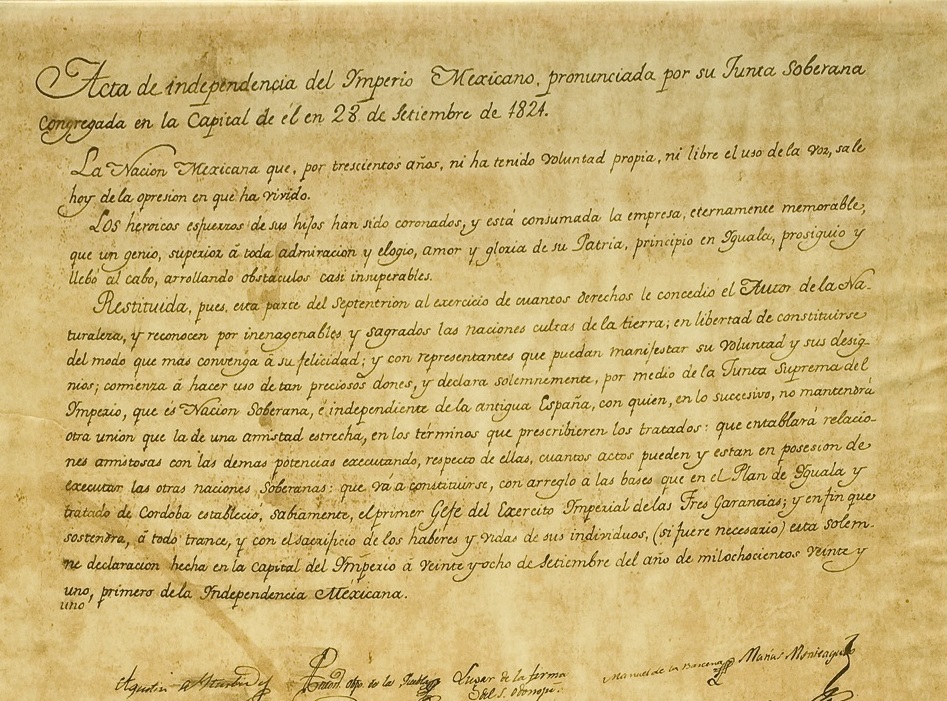 Acta de independencia del Imperio Mexicano, pronunciada por su Junta Soberana
congregada en la Capital de él en 28 de Setiembre de 1821.
La Nacion Mexicana que, por trescientos años, ni ha tenido voluntad propia, ni libre el uso de la voz, sale
hoy de la opresion en que ha vivido.
Los heroicos esfuerzos de sus hijos han sido coronados, y está consumada la empresa, eternamente memorable,
que un genio, superior á toda admiracion y elogio, amor y gloria de su Patria, principió en Iguala, prosiguió y
llebó al cabo, arrollando obstáculos casi insuperables.
Restituida, pues, esta parte del Septentrion al exercicio de cuantos derechos le concedió el Autor de la Na-
turaleza, y reconocen por inenagenables y sagrados las naciones cultas de la tierra; en libertad de constituirse
del modo que más convenga á su felicidad; y con representantes que puedan manifestar su voluntad y sus desig-
nios; comienza á hacer uso de tan preciosos dones, y declara solemnemente, por medio de la Junta Suprema del
Imperio, que és Nacion Soberana, é independiente de la antigua España, con quien, en lo succesivo, no mantendrá
otra union que la de una amistad estrecha, en los términos que prescribieren los tratados: que entablará relacio-
nes amistosas con las demas potencias executando, respecto de ellas, cuantos actos pueden y estan en posesion de
executar las otras naciones Soberanas: que va á constituirse, con arreglo á las bases que en el Plan de Iguala y
tratado de Cordoba estableció, sabiamente, el primer Gefe del Exercito Imperial de las Tres Garantias; y en fin que
sostendrá, á todo trance, y con el sacrificio de los haberes y vidas de sus individuos, (si fuere necesario) esta solem-
ne declaracion hecha en la capital del Imperio á veinte y ocho de Setiembre del año de mil ochocientos veinte y
uno, primero de la Independencia Méxicana.
uno
Agustin de Iturbide Anton. Obpo. de la Puebla Lugar de la firma Manuel de la Barcena Matias Monteagudo
del S. Odonojú.